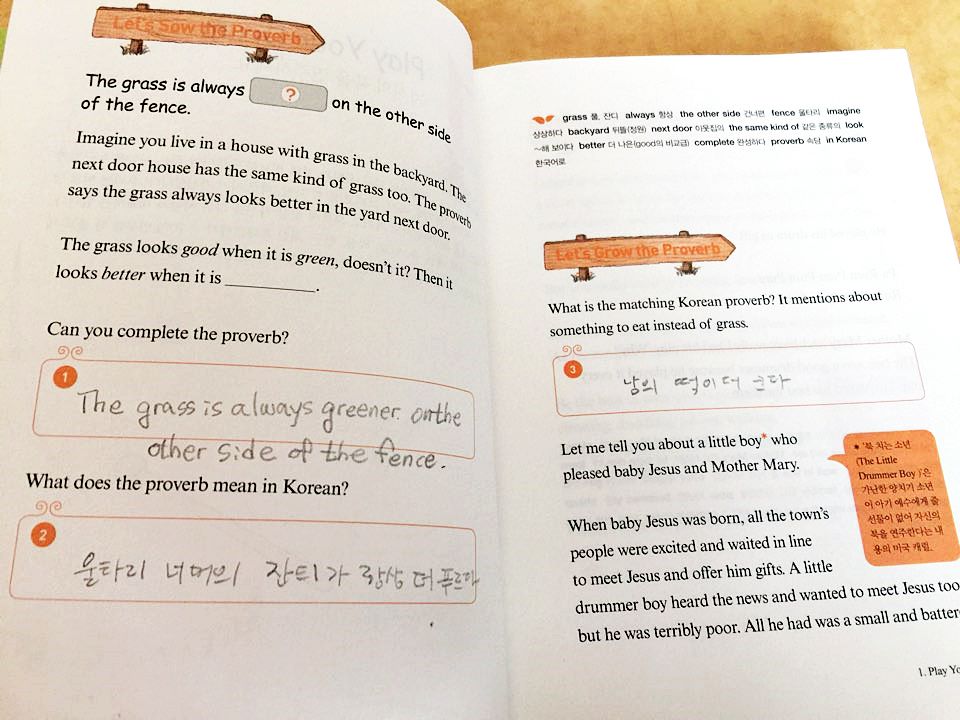 Let's Sow the Proverb
The grass is always ? on the other side
of the fence.
Imagine you live in a house with grass in the backyard. The
next door house has the same kind of grass too. The proverb
says the grass always looks better in the yard next door.
The grass looks good when it is green, doesn't it? Then it
looks better when it is __________.
Can you complete the proverb?
1
The grass is always greener on the
other side of the fence.
What does the proverb mean in Korean?
2
울타리 너머의 잔디가 항상 더 푸르다
grass 풀, 잔디 always 항상 the other side 건너편 fence 울타리 imagine
상상하다 backyard 뒤뜰(정원) next door 이웃집의 the same kind of 같은 종류의 look
~해 보이다 better 더 나은(good의 비교급) complete 완성하다 proverb 속담 in Korean
한국어로
Let's Grow the Proverb
What is the matching Korean proverb? It mentions about
something to eat instead of grass.
3
남의 떡이 더 크다
Let me tell you about a little boy* who
pleased baby Jesus and Mother Mary.
* '북 치는 소년
(The Little
Drummer Boy)'은
가난한 양치기 소년
이 아기 예수에게 줄
선물이 없어 자신의
북을 연주한다는 내
용의 미국 캐럴.
When baby Jesus was born, all the town's
people were excited and waited in line
to meet Jesus and offer him gifts. A little
drummer boy heard the news and wanted to meet Jesus too
but he was terribly poor. All he had was a small and batter
1. Play Yo